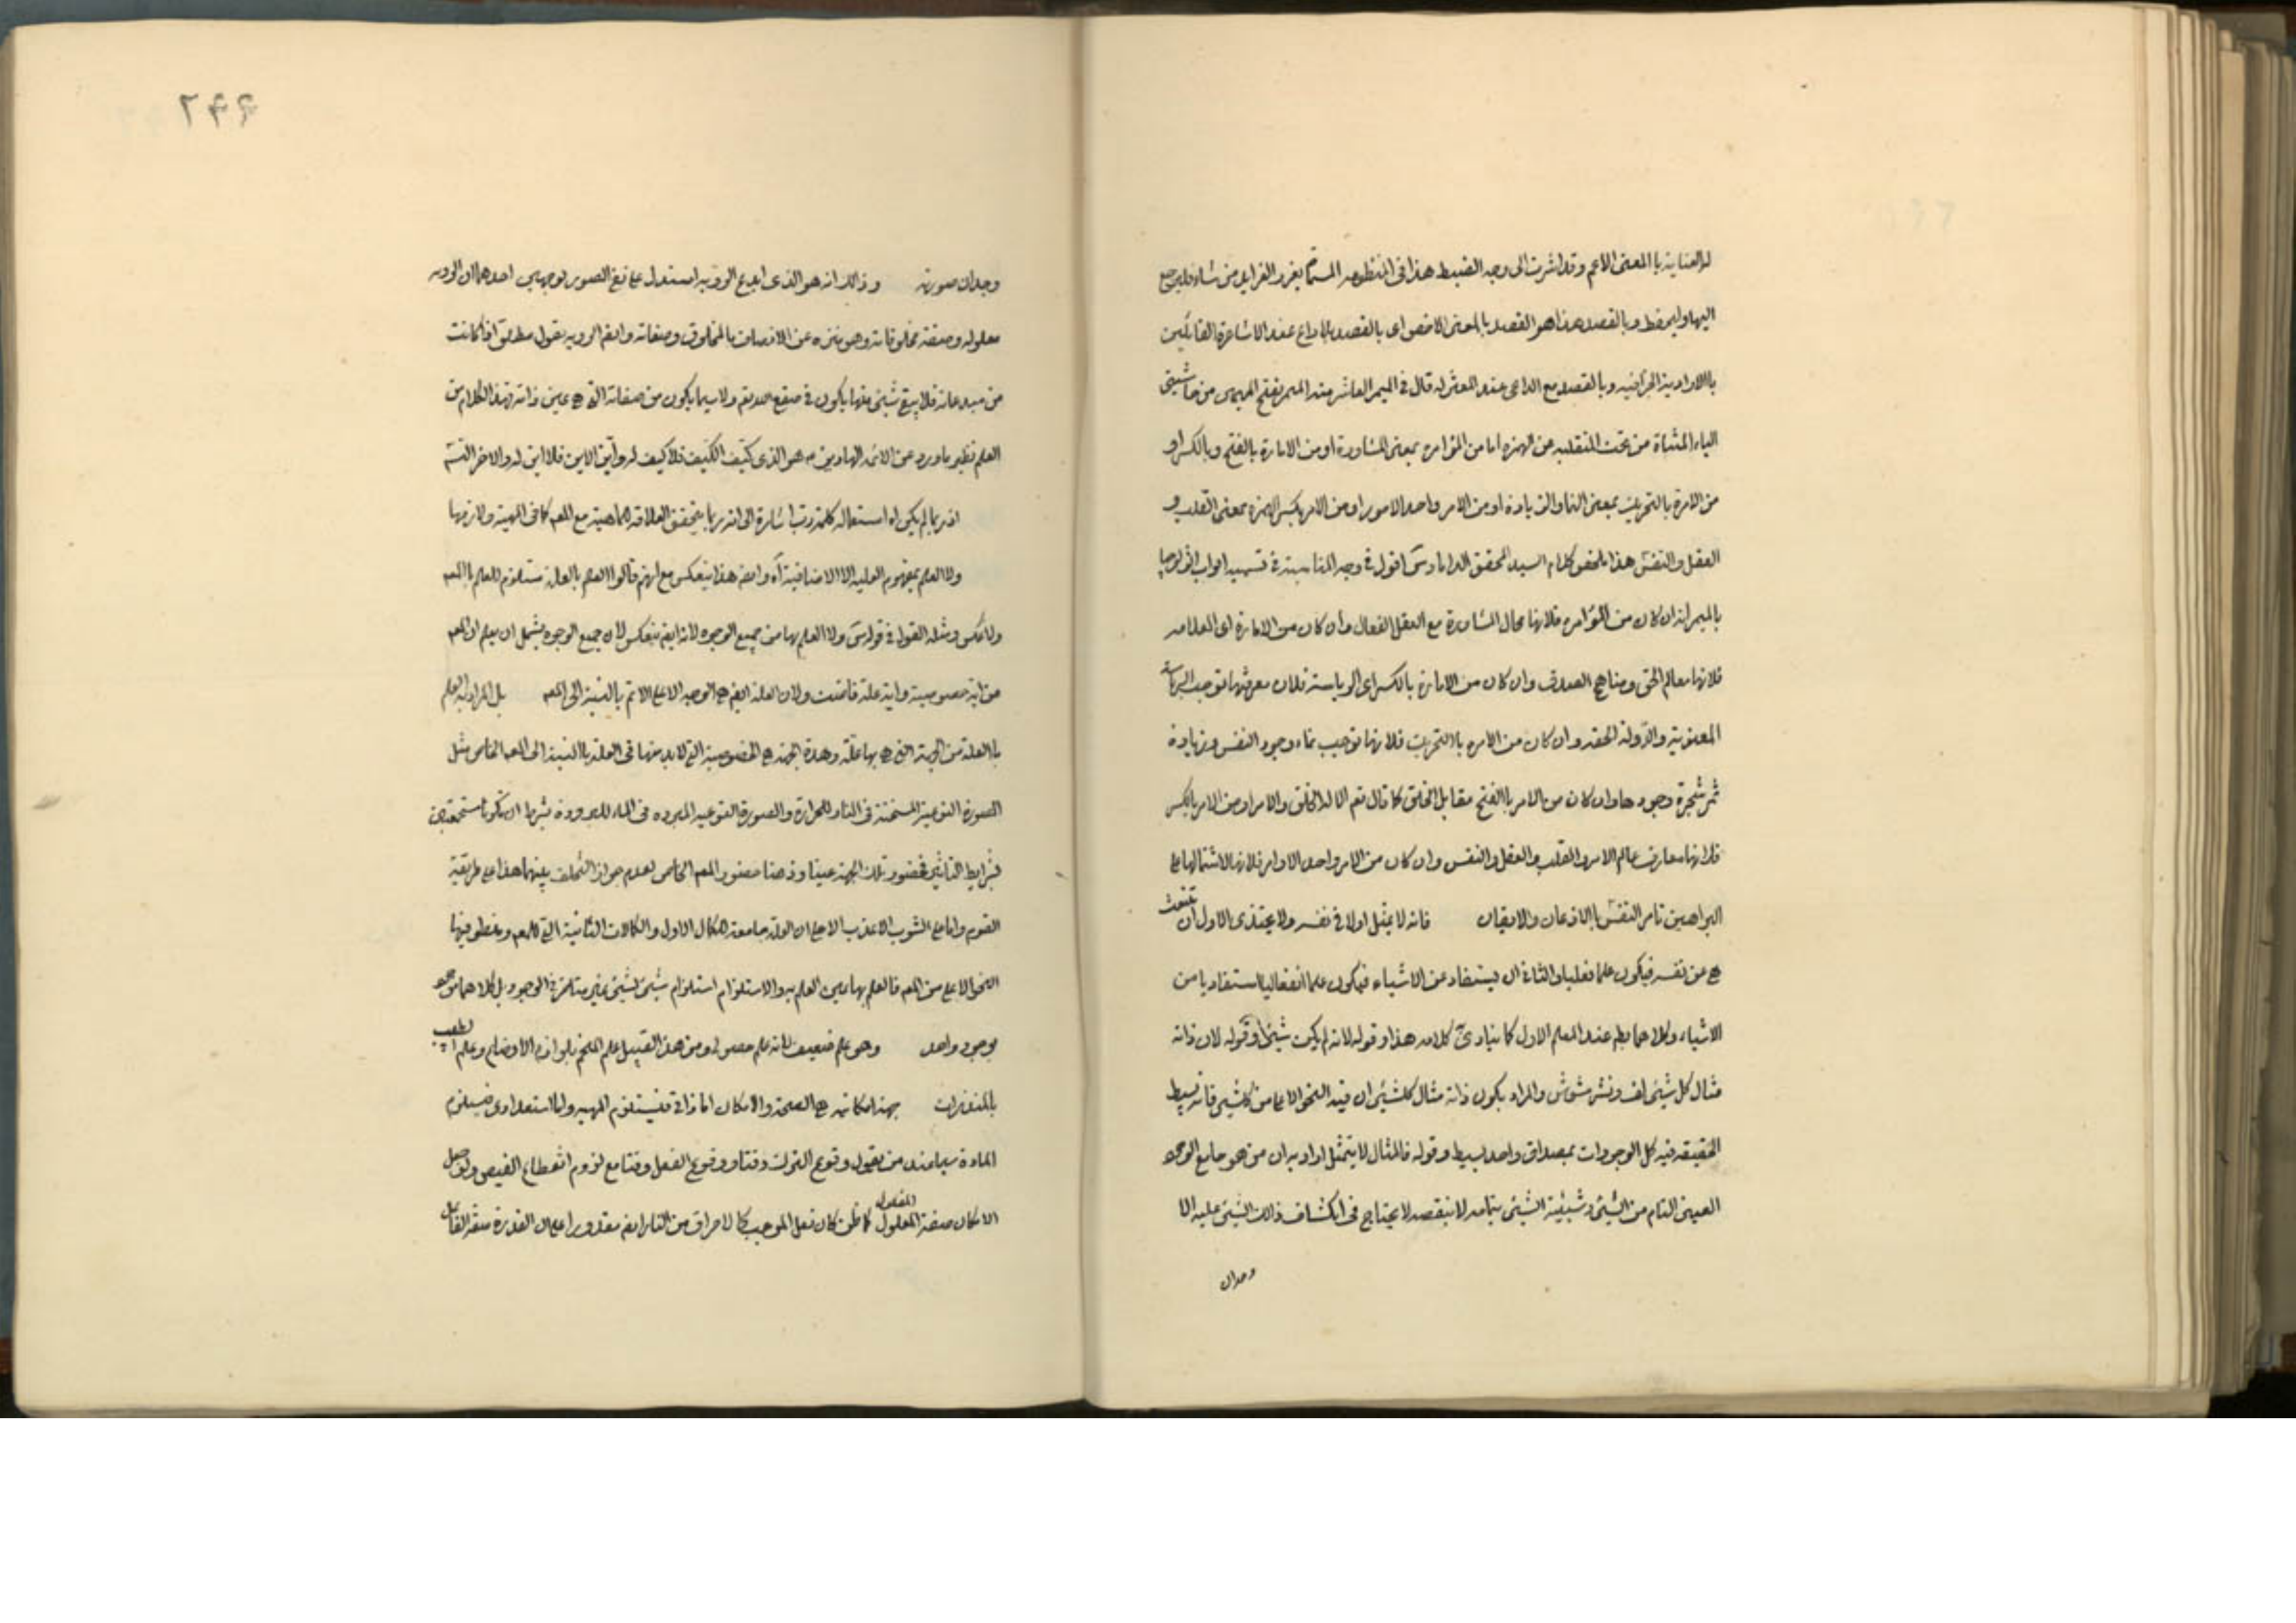 له العناية بالمعنى الاعم وقد اشرت الى وجه الضبط هذا فى المنظومه المسماة بغرر الفرايد من شاء فليرجع
اليها وليحفظ وبالقصد هذا هو القصد بالمعنى الاخص اى بالقصد بلا داع عند الاشاعرة القائلين
بالارادية الجزافيه وبالقصد مع الداعى عند المعتزله قال فى الميمر العاشر منه الميمر بفتح الميمين من حاشيتى
الياء المثناة من تحت المنقلبه عن الهمزه اما من المؤامره بمعنى المشاورة او من الامارة بالفتح وبالكسر او
من الامرة بالتحريك بمعنى النماء والزيادة او من الامر واحد الامور او من الامر بكسر الهمزه بمعنى القلب و
العقل والنفس هذا ملخص كلام السيد المحقق الداماد س اقول فى وجه المناسبة فى تسميه ابواب اثولوجيا
بالميمر انه ان كان من المؤامره فلانها محال المشاورة مع العقل الفعال وان كان من الامارة اى العلامه
فلانها معالم الحق ومناهج الصدق وان كان من الامارة بالكسر اى الرياسته فلان معرفتها توجب الرياسة
المعنوية والدولة الحقه وان كان من الامره بالتحريك فلانها توجب نماء وجود النفس وزيادة
ثمر شجرة وجودها وان كان من الامر بالفتح مقابل الخلق كما قال تعم الا له الخلق والامر او من الامر بالكسر
فلانها معارف عالم الامر والقلب والعقل والنفس وان كان من الامر واحد الاوامر فلانها لاشتمالها على
البراهين تامر النفس بالاذعان والايقان فانه لا يمثل اولا فى نفسه ولا يحتذى الاول ان تنبعث
هى عن نفسه فيكون علما فعليا والثانى ان يستفاد عن الاشياء فيكون علما انفعاليا مستفاديا من
الاشياء وكلاهما بط عند المعلم الاول كما ينادى كلامه هذا وقوله لانه لم يكن شيئا وقوله لان ذاته
مثال كل شيئ لف ونشر مشوش والمراد بكون ذاته مثال كلشيئ ان فيه النحو الاعلى من كلشيئ فانه بسيط
الحقيقه فيه كل الوجودات بمصداق واحد بسيط وقوله فالمثال لا يتمثل اراد به ان من هو جامع الوجود
العينى التام من الشيئ وشيئية الشيئ بتمامه لا بنقصه لا يحتاج فى انكشاف ذلك الشيئ عليه الا
وجدان
٢٩٩
وجدان صورته وذلك انه هو الذى ابدع الرويه استدل على نفى الصور بوجهين احدهما ان الرويه
معلوله وصفته مخلوقاته وهو منزه عن الاتصاف بالمخلوق وصفاته وايضا الرويه بقول مطلق اذا كانت
من مبدعاته فلا يبقى شيئ منها يكون فى صقع هويته ولا سيما يكون من صفاته التى هى عين ذاته وهذا الكلام من
العلم نظير ما ورد عن الائمه الهادين ع هو الذى كيّف الكيف فلا كيف له وايّن الاين فلا اين له والاخر التسّ
اذ ربما لم يكن اه استعماله كلمة رب اشارة الى انه ربما يتحقق العلاقه الماهية مع المعم كما فى المهية ولازمها
ولا العلم بمفهوم العلية الا الاضافية آه وايضا هذا ينعكس مع انهم قالوا العلم بالعلة مستلزم للعلم بالمعم
ولا عكس ومثله القول فى قوله س ولا العلم بها من جميع الوجوه لانه ايض ينعكس لان جميع الوجوه يشمل ان يعلم ان المعم
من اية خصوصية واية علة فاضت ولان العلة ايض هى الوجه الاعلى الاتم بالنسبة الى المعم بل المراد به العلم
بالعلة من الجهة التى هى بها علة وهذه الجهة هى الخصوصية التى لابد منها فى العلة بالنسبة الى المعم الخاص مثل
الصورة النوعية المسخنة فى النار للحرارة والصورة النوعيه المبرده فى الماء للبرودة بشرط ان تكونا مستجمعتين
لشرايط التاثير فحضور تلك الجهة عينا وذهنا حضور المعم الخاص لعدم جواز التخلف بينهما هذا على طريقة
القوم واما على الشرب الاعذب الاحلى ان العلة جامعة للكمال الاول والكمالات الثانية التى للمعم ومنطو فيها
النحو الاعلى من المعم فالعلم بها عين العلم به والاستلزام استلزام شيئ لشيئ غير متاخر فى الوجود بل كلاهما موجود
بوجود واحد وهو علم ضعيف لانه علم حصولى ومن هذا القبيل علم المنجم بلوازم الاوضاع وعلم الطبيب
بالمنذرات جهة امكانيه هى الصحة والامكان اما ذاتى فيستلزم المهيه واما استعدادى فيستلزم
المادة سيما عند من يقول وقوع الترك وقتا ووقوع الفعل وقتا مع لزوم انقطاع الفيض ولو جعل
الامكان صفة المعلول المفعول كما ظن كان فعل الموجب كالاحراق من النار ايض مقدورا على ان القدرة صفة الفاعل